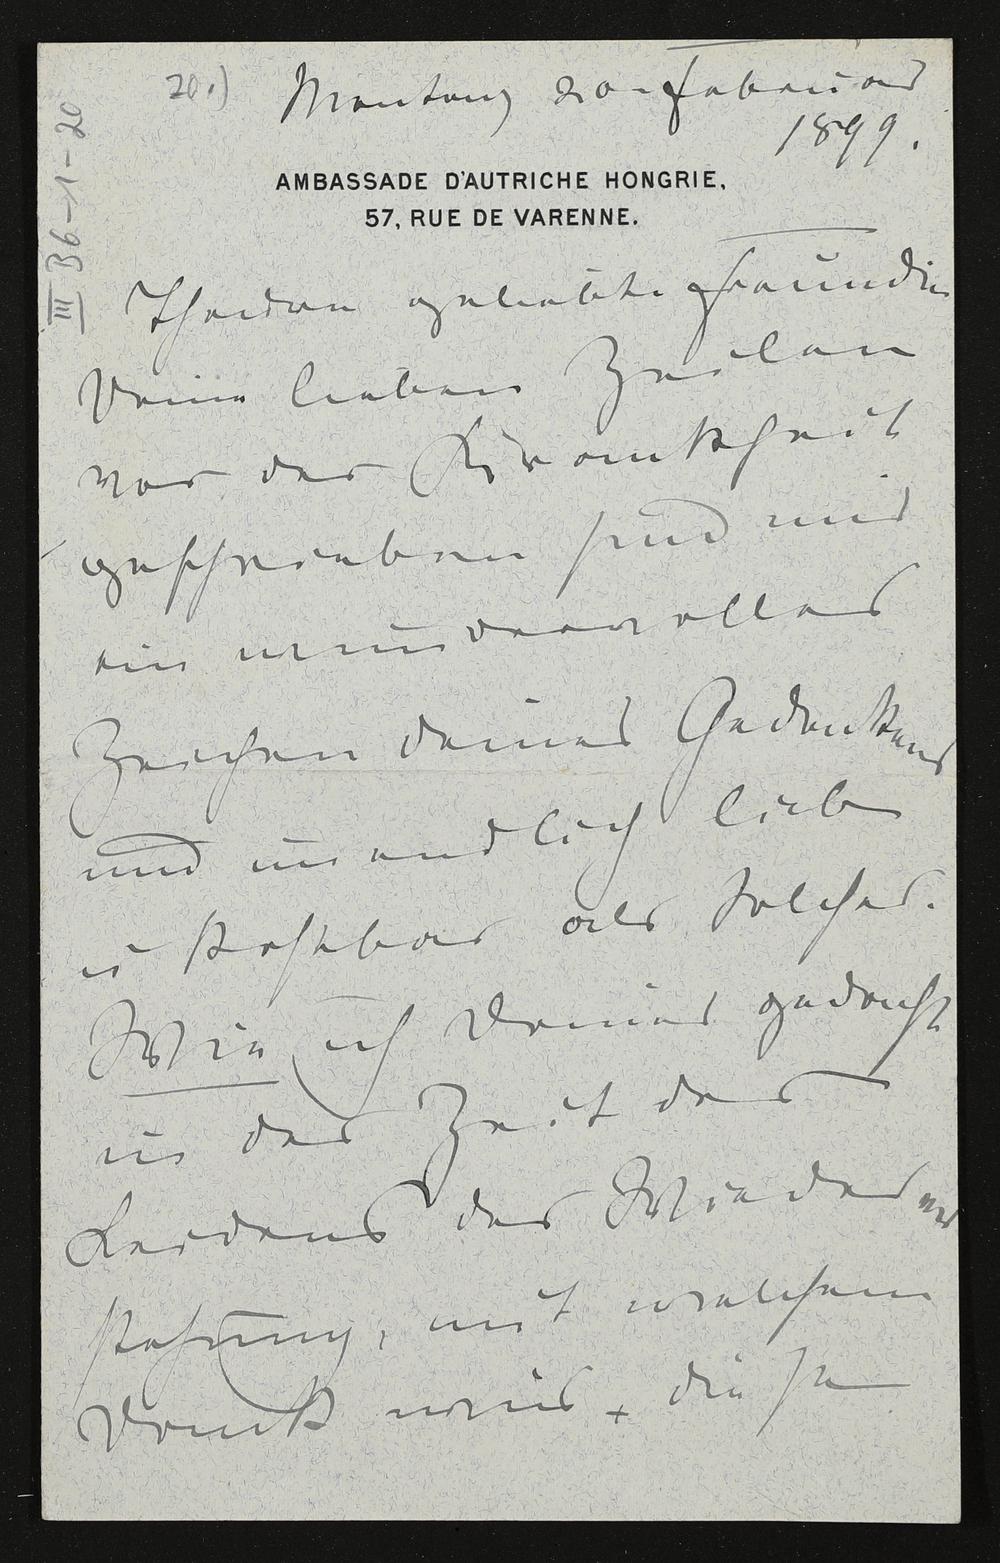 20.) Montag 20. Februar
1899.
III B6-1-20
AMBASSADE D'AUTRICHE HONGRIE,
57, RUE DE VARENNE.
Theure geliebte Freundin
Deine lieben Zeilen
vor der Krankheit
geschrieben sind mir
ein wundervolles
Zeichen deines Gedenkens
und unendlich lieb
u kostbar als solches.
Wie ich Deiner gedacht
in der Zeit des
Leidens der Wieder
kehrung, mit welchem
Dank nun, die